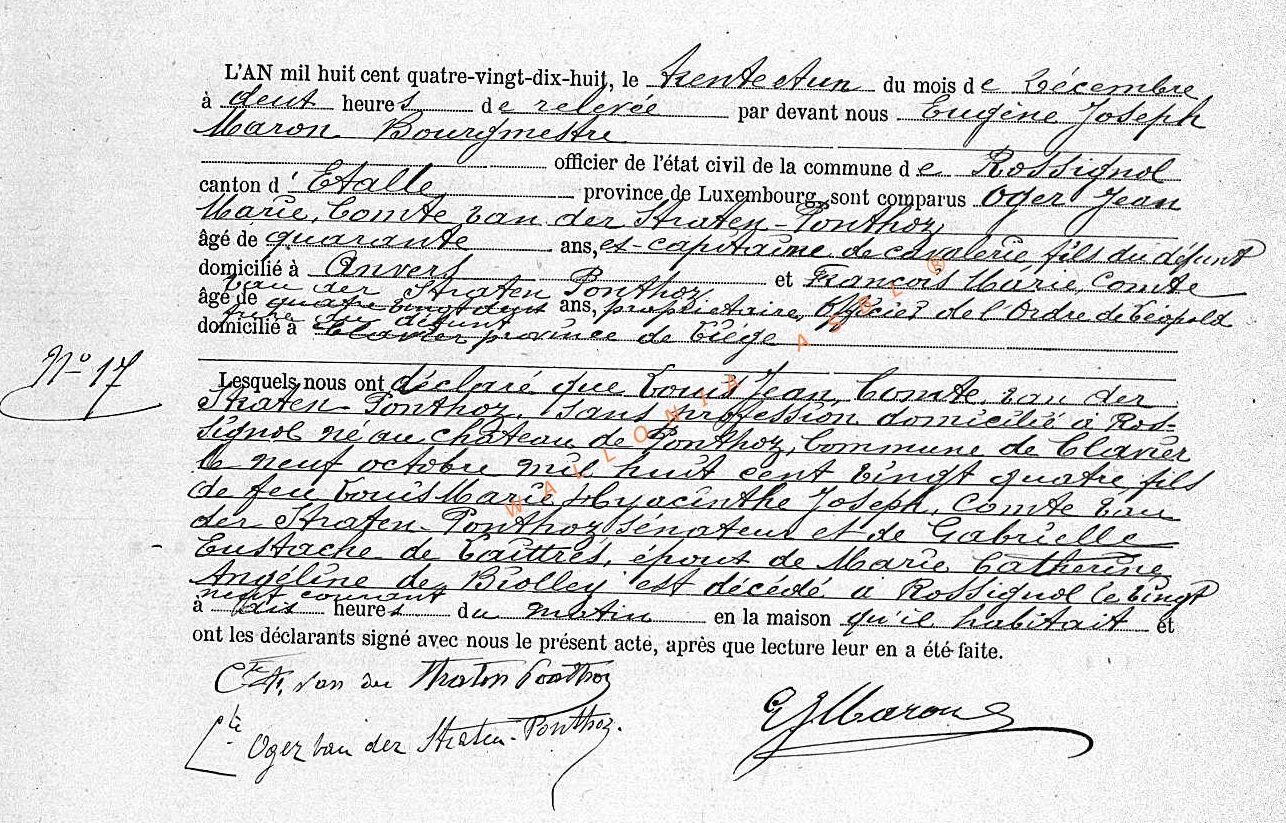 L'AN mil huit cent quatre-vingt-dix-huit, le trente et un du mois de Décembre
à deux heures de relevée par devant nous Eugène Joseph
Maron Bourgmestre
officier de l'état civil de la commune de Rossignol
canton d'Etalle province de Luxembourg, sont comparus Oger Jean
Marie, Comte van der Straten-Ponthoz,
âgé de quarante ans, ex-capitaine de cavalerie fils du défunt
domicilié à Anvers et François Marie, Comte
van der Straten Ponthoz
âgé de quatre vingt ans, propriétaire, Officier de l'Ordre de Léopold
frère du défunt
domicilié à Clavier province de Liége
N° 17
Lesquels nous ont déclaré que Louis Jean, Comte, van der
Straten-Ponthoz, sans profession domicilié à Ros-
signol né au château de Ponthoz, Commune de Clavier
le neuf octobre mil huit cent vingt quatre fils
de feu Louis Marie Hyacinthe Joseph, Comte van
der Straten-Ponthoz sénateur et de Gabrielle
Eustache de Lauttrés, époux de Marie Catherine
Angéline de Biolley est décédé à Rossignol le vingt
neuf courant
à dix heures du matin en la maison qu'il habitait et
ont les déclarants signé avec nous le présent acte, après que lecture leur en a été faite.
Cte F. van der Straten Ponthoz
EJMaron
Cte Oger van der Straten-Ponthoz.
WALLONIA ASBL ®